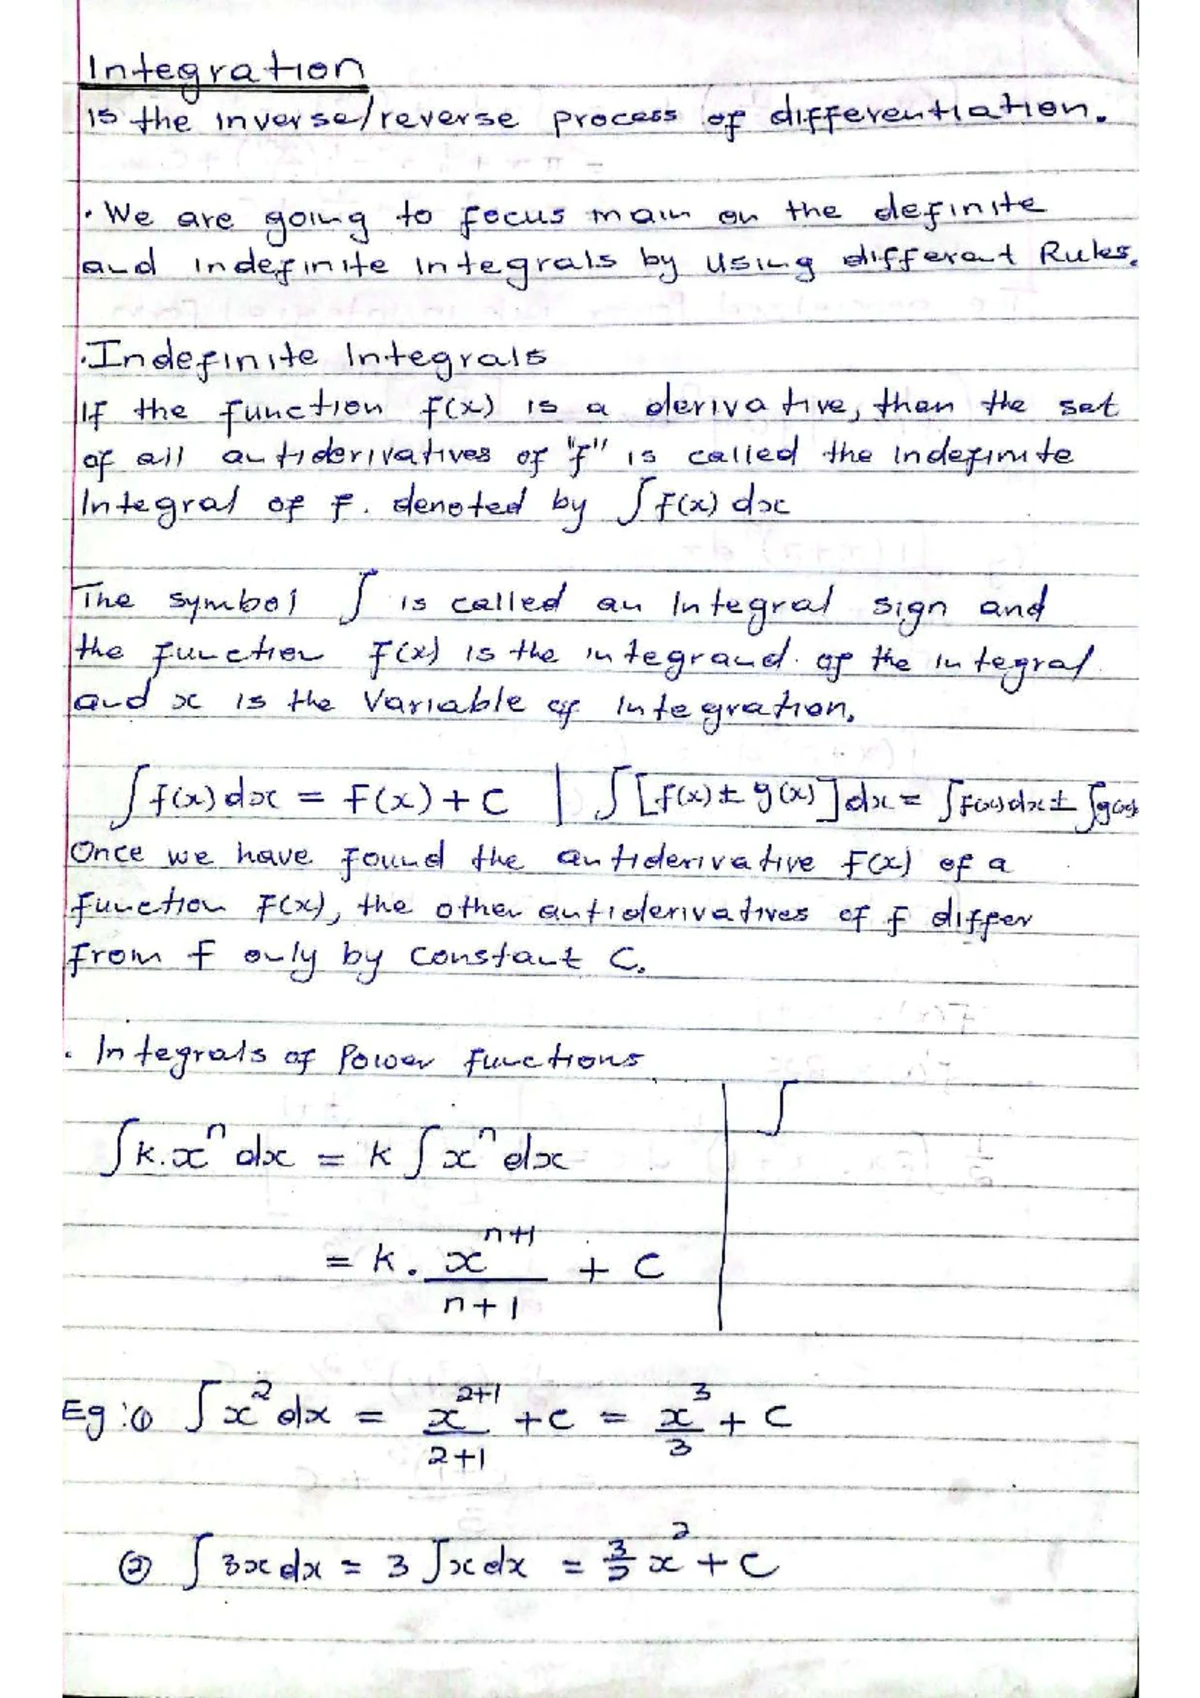 Integration
is the inverse/reverse process of differentiation.
· We are going to focus main on the definite
and indefinite integrals by using different Rules.
· Indefinite Integrals
If the function f(x) is a derivative, then the set
of all antiderivatives of "f" is called the indefinite
Integral of f. denoted by ∫f(x) dx
The symbol ∫ is called an Integral sign and
the function f(x) is the integrand of the integral
and x is the Variable of Integration.
∫f(x)dx = F(x) + C | ∫[f(x) ± g(x)]dx = ∫f(x)dx ± ∫g(x)
Once we have found the antiderivative F(x) of a
function F(x), the other antiderivatives of f differ
from f only by constant C.
· Integrals of Power functions
∫k.xⁿ dx = k ∫xⁿ dx | ∫
= k. xⁿ⁺¹/n+1 + C
Eg: ① ∫x² dx = x²⁺¹/2+1 + C = x³/3 + C
② ∫3x dx = 3 ∫x dx = 3/2 x² + C